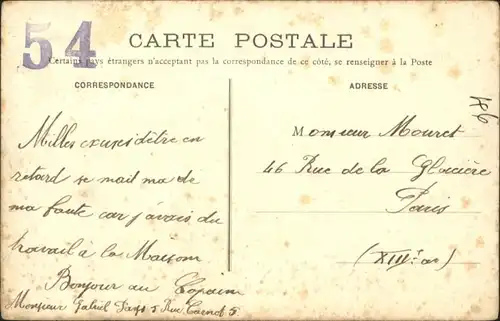 54
CARTE POSTALE
Certains pays étrangers n'acceptant pas la correspondance de ce côté, se renseigner à la Poste
CORRESPONDANCE
Milles excuses d'être en
retard se mail ma de
ma faute car j'avais du
travail a la Maison
Bonjour au Copain
Monsieur Gabriel 5 Rue Carnot 5
ADRESSE
486
Monsieur Mouret
46 Rue de la Glacière
Paris
(XIIIe ar)